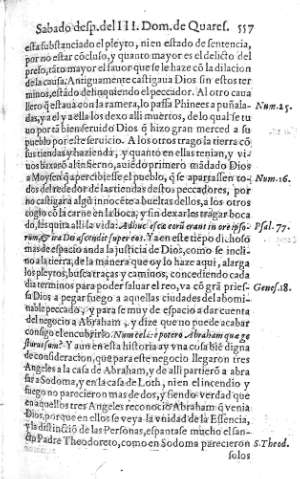 Sabado desp. del III. Dom. de Quares. 557
esta substanciado el pleyto, ni en estado de sentencia,
por no estar cõcluso, y quanto mayor es el delicto del
preso, tãto mayor el fauor que se le haze cõ la dilacion
de la causa. Antiguamente castigaua Dios sin estos ter
minos, estãdo delinquiendo el peccador. Al otro caua
llero q̃ estaua con la ramera, lo passa Phinees a puñala- Num. 25.
das, y a el y a ella los dexo alli muertos, de lo qual se tu
uo por tã bien seruido Dios q̃ hizo gran merced a su
pueblo por este seruicio. A los otros trago la tierra cõ
sus tiendas y hazienda, y quanto en ellas tenian, y vi-
uos baxarõ al infierno, auiẽdo primero mãdado Dios
a Moysen q̃ apercibiesse el pueblo, q̃ se apartassen to- Num. 16.
dos del rededor de las tiendas destos peccadores, por
no castigara algũ innocẽte a bueltas dellos, a los otros
cogio cõ la carne en la boca, y sin dexarles tragar boca
do, les quita alli la vida: Adhuc escæ eorũ erant in ore ipso- Psal. 77.
rum, & ira Dei ascendit super eos. Ya en este tiẽpo dichoso
mas de espacio anda la justicia de Dios, como se incli-
no a la tierra, de la manera que oy lo haze aqui, alarga
los pleytos, busca traças y caminos, concediendo cada
dia terminos para poder saluar el reo, va cõ grã pries- Genes. 18.
sa Dios a pegar fuego a aquellas ciudades del abomi-
nable peccado, y para se muy de espacio a dar cuenta
del negocio a Abraham, y dize que no puede acabar
consigo el encubrirlo. Num celare potero Abraham quæ ge
sturus sum? Y aun en esta historia ay vna cosa biẽ digna
de consideracion, que para este negocio llegaron tres
Angeles a la casa de Abraham, y de alli partierõ a abra
sar a Sodoma, y en la casa de Loth, ni en el incendio y
fuego no parecieron mas de dos, y siendo verdad que
en aquellos tres Angeles reconocio Abraham q̃ venia
Dios, porque en ellos se veya la vnidad de la Essencia,
y la distinctiõ de las Personas, espantase mucho el san-
cto Padre Theodoreto, como en Sodoma parecieron S. Theod.
solos